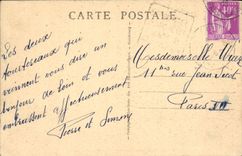 CARTE POSTALE
Les deux
tourtereaux qui
viennent vous dire un
bonjour de loin et vous
embrassent affectueusement
Pierre et Simone
Mesdemoiselles
11 bis rue Jean
Paris